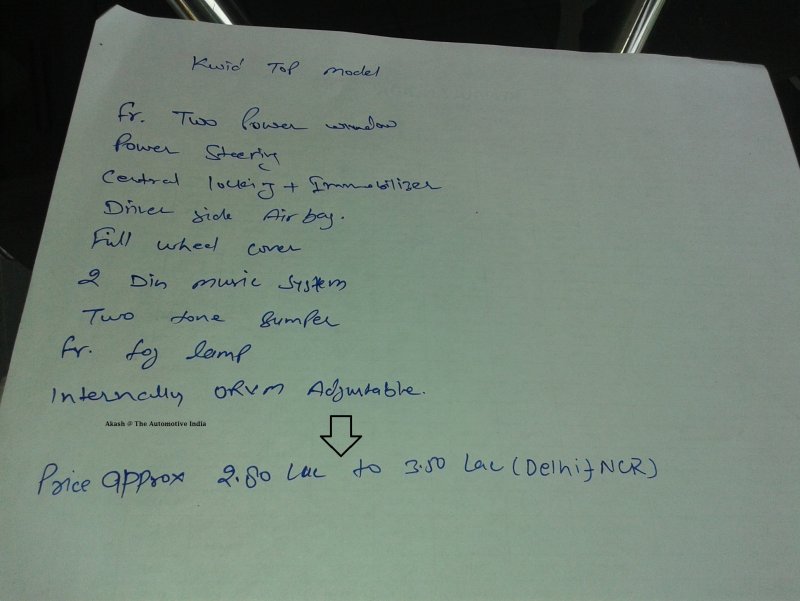 Kwid Top model
fr. Two Power window
Power Steering
Central locking + Immobilizer
Driver side Air bag.
Full wheel cover
2 Din music system
Two tone Bumper
fr. fog lamp
Internally ORVM Adjustable.
Akash @ The Automotive India
Price approx 2.80 Lac to 3.50 Lac (Delhi & NCR)